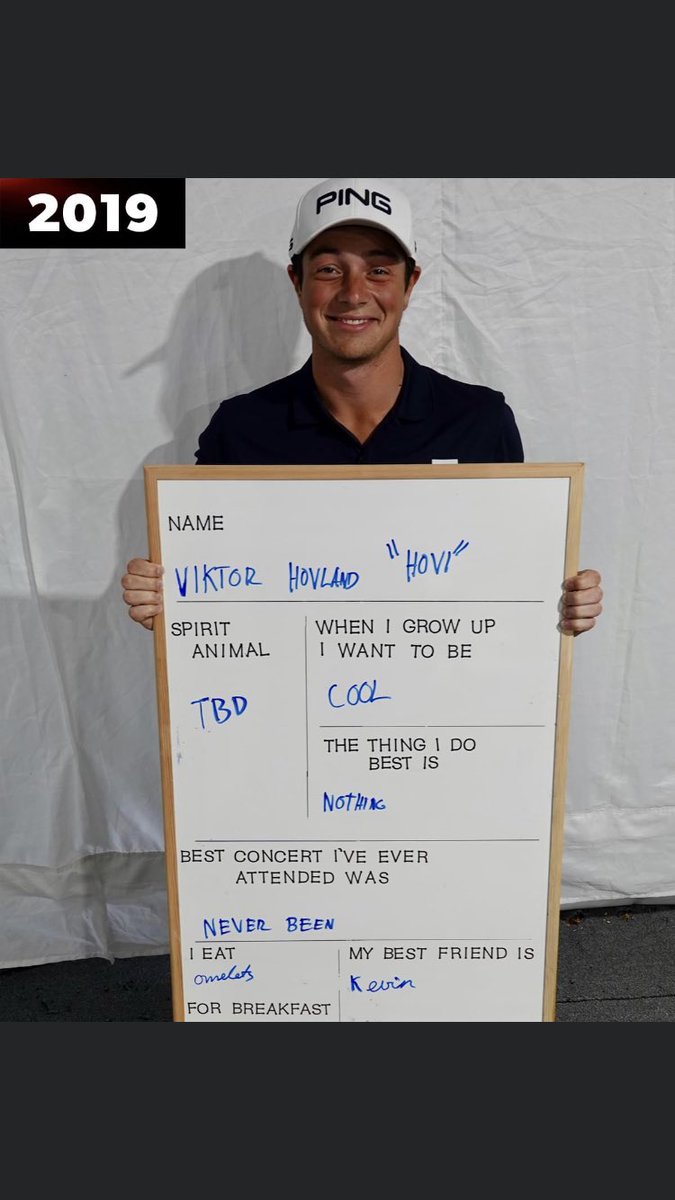 2019
PING
NAME
VIKTOR HOVLAND "HOVI"
SPIRIT
ANIMAL
TBD
WHEN I GROW UP
I WANT TO BE
COOL
THE THING I DO
BEST IS
NOTHING
BEST CONCERT I'VE EVER
ATTENDED WAS
NEVER BEEN
I EAT
omelets
FOR BREAKFAST
MY BEST FRIEND IS
Kevin